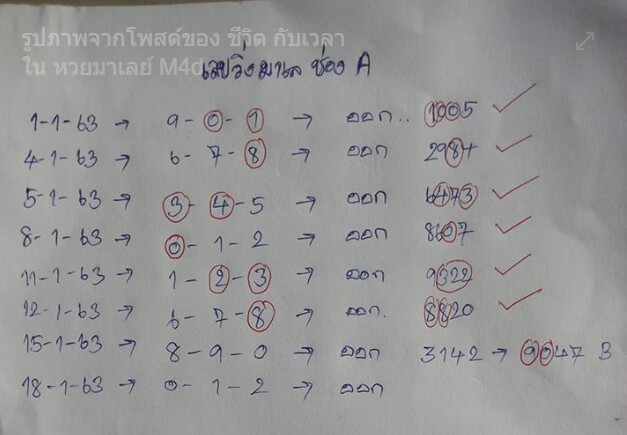 รูปภาพจากโพสต์ของ ชีวิต กับเวลา
ใน หวยมาเลย์ M4d
เลขวิ่งมาเล ช่อง A
1-1-63 → 9-0-1 → ออก.. 1005
4-1-63 → 6-7-8 → ออก 2984
5-1-63 → 3-4-5 → ออก 6473
8-1-63 → 0-1-2 → ออก 8607
11-1-63 → 1-2-3 → ออก 9322
12-1-63 → 6-7-8 → ออก. 8820
15-1-63 → 8-9-0 → ออก 3142 → 9047 B
18-1-63 → 0-1-2 → ออก